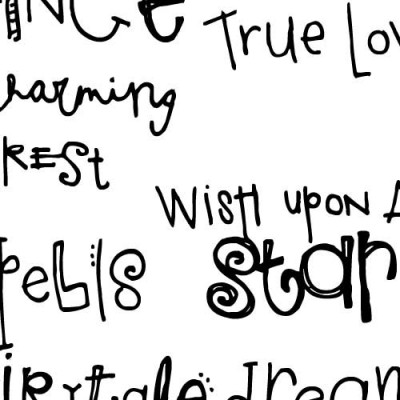 INCe
True Lov
harming
REST
Wish upon A
pells
Star
iRytale
dream